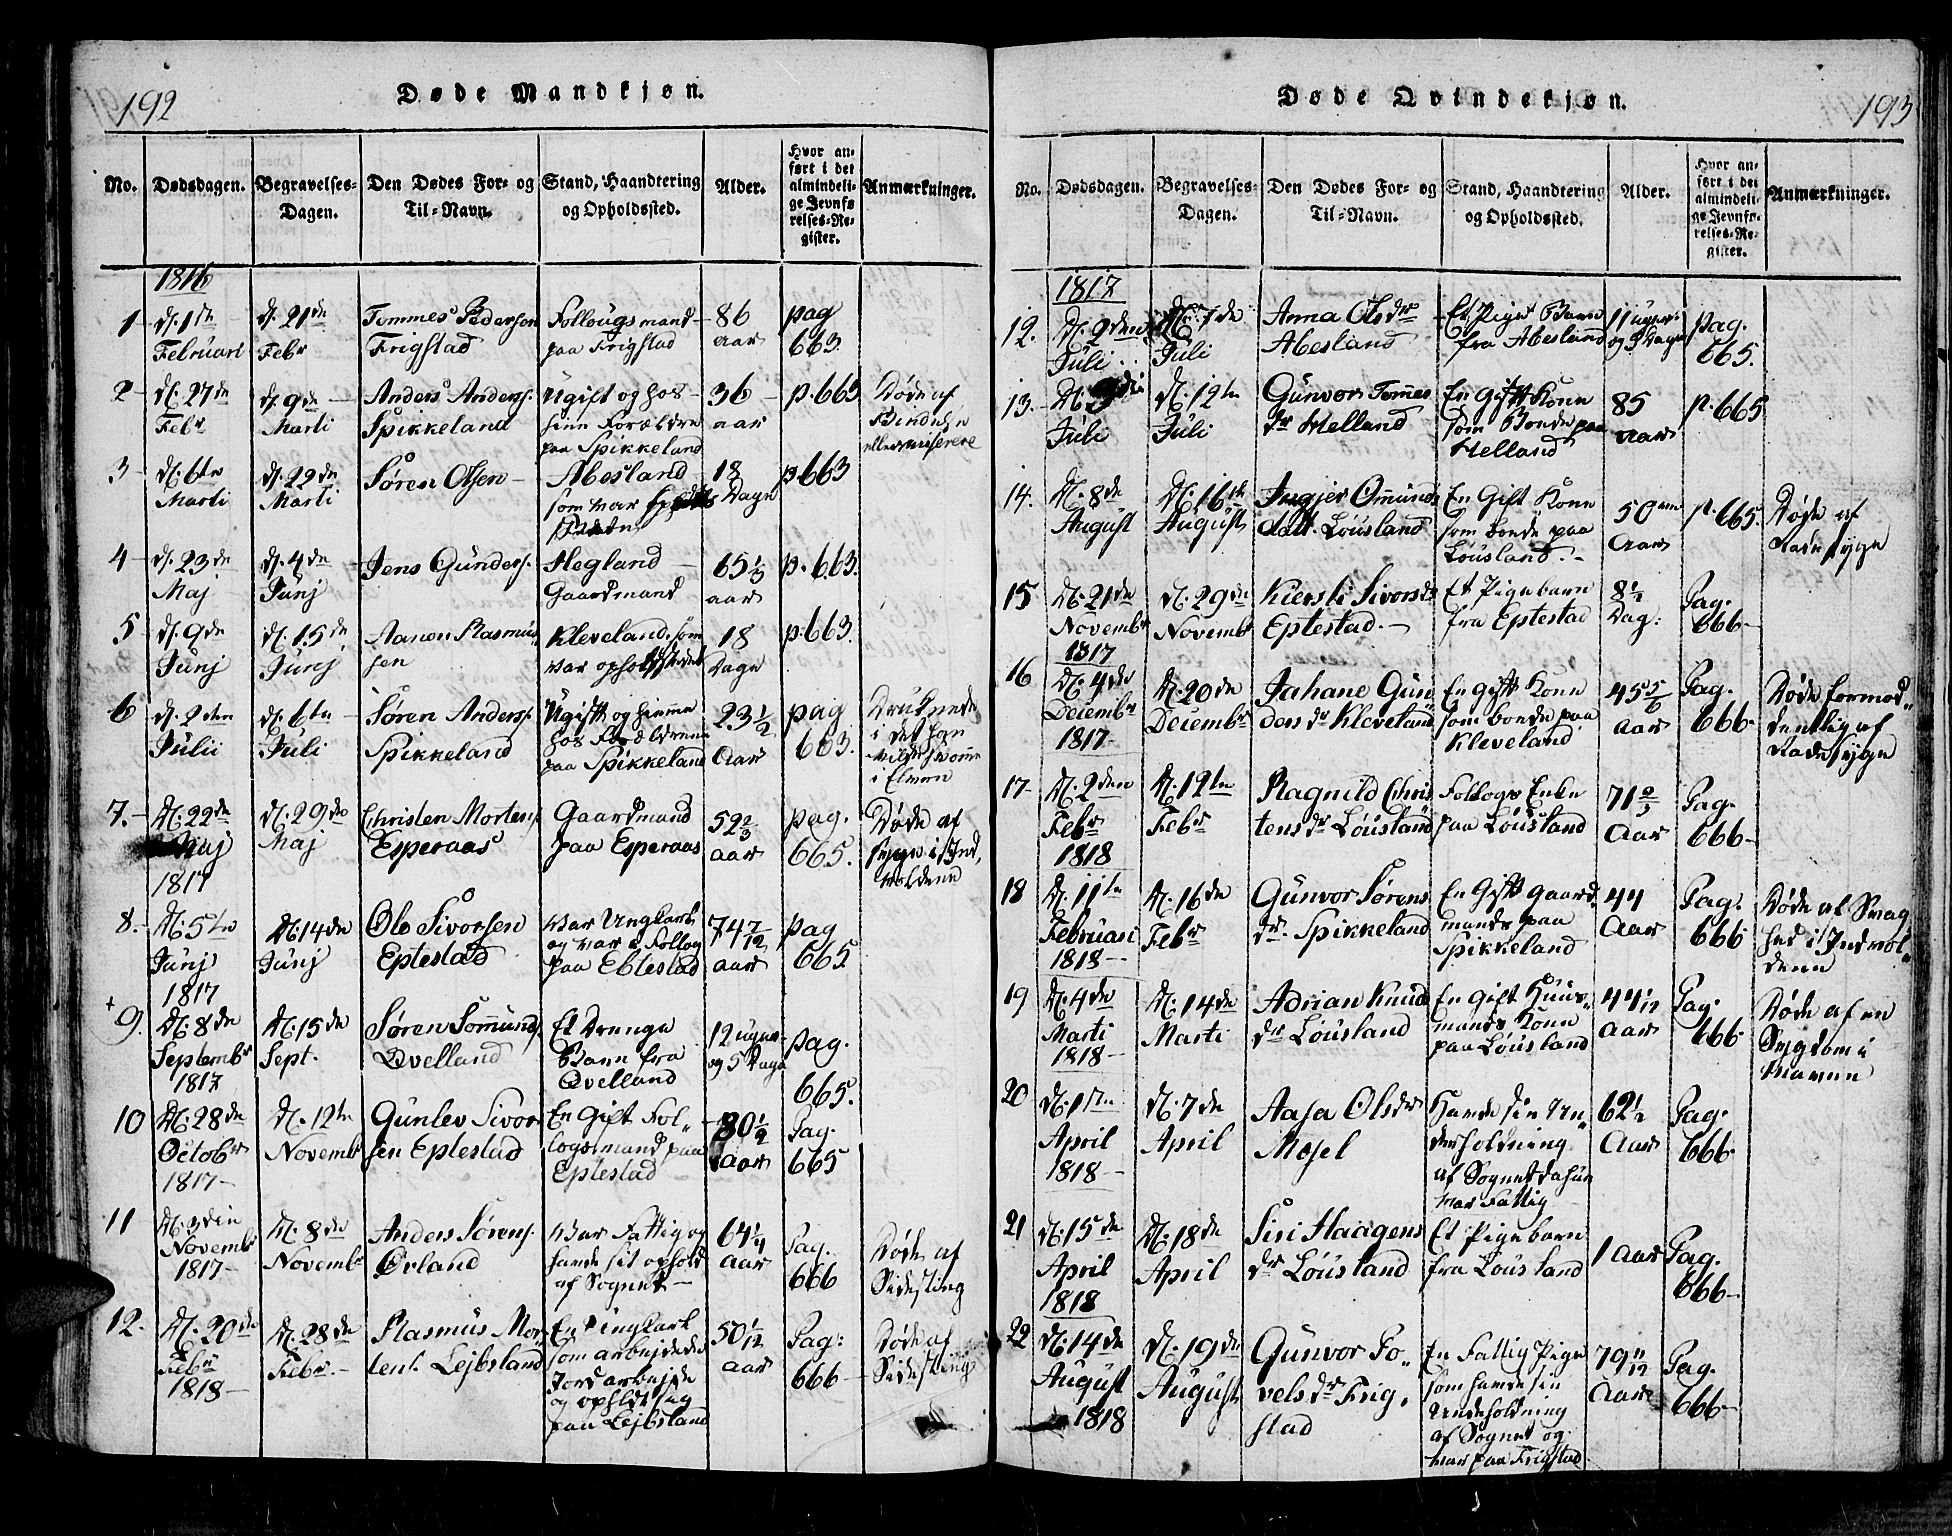 192
Døde Mandkjøn.
No. Dødsdagen. Begravelses-Dagen. Den Dødes For- og Til-Navn. Stand, Haandtering og Opholdssted. Alder. Hvor anført i det almindelige Jevnførelses-Register. Anmærkninger.
1816
1 d. 1ste Februari d. 21de Febr Tommes Pederson Frigstad Follougsmand paa Frigstad 86 aar pag 663.
2 d. 27de Febr d. 9de Marti Anders Anders. Spikkeland Ugift og hos sine Forældre paa Spikkeland 36 aar p. 663 Døde af eller miserere
3 d. 6te Marti d. 22de Marti Søren Olsen Abesland som var 18 Dage p. 663
4 d. 23de Maj d. 4de Junj Jens Gunders. Hegland Gaardmand 65 1/3 aar p. 663.
5 d. 9de Junj d. 15de Junj Aanen Rasmussen Kleveland, som var 18 Dage p. 663.
6 d. 2den Julii d. 6te Juli Søren Anders. Spikkeland Ugift og hos Forældrene paa Spikkeland 23 1/2 Aar pag 663. Druknede i det han i Elven
7. d. 22de Maj 1817 d. 29de Maj Christen Mortens. Esperaas Gaardmand paa Esperaas 52 2/3 aar pag. 665. Døde af syge i Indvoldene
8. d. 5te Junj 1817 d. 14de Junj Ole Sivorsen Eptestad Var Ungkarl og var i Follog paa Eblestad 74 7/12 aar pag 665.
9. d. 8de Septembr 1817 d. 15de Sept. Søren Somunds. Qvelland Et Drenge Barn fra Qvelland 12 uger og 5 Dage pag. 665.
10 d. 28de Octobr 1817 d. 12te Novembr Gunlev Sivorsen Eptestad En Gift Follogsmand paa Eptestad 80 1/2 Aar Pag. 665
11 d. 3die Novembr 1817 d. 8de Novembr Anders Sørens. Øvland Var Fattig og havde sit ophold af Sognet 64 1/4 Aar Pag. 666 Døde af Sidesting
12. d. 20de Febr 1818 d. 28de Febr. Rasmus Mortens. Lejbsland En Ungkarl som arbejdede Jordarbejde og opholdt sig paa Lejbsland 50 1/12 aar Pag: 666 Døde af Sidesting
193
Døde Qvindekjøn.
No. Dødsdagen. Begravelses-Dagen. Den Dødes For- og Til-Navn. Stand, Haandtering og Opholdssted. Alder. Hvor anført i det almindelige Jevnførelses-Register. Anmærkninger.
1817
12. d. 2den Juli d. 7de Juli Anna Olsdr Abesland Et Pige Barn fra Abesland 11 uger og Dage pag. 665.
13. Juli d. 12te Juli Gunvor Tommesdr Helland En Gift Kone som Bonde paa Helland 85 Aar p. 665
14. d. 8de August d. 16de August Ingjer Omunds Datt. Løusland En Gift Kone som bonde paa Løusland. 50 Aar p. 665. Døde af Radesyge
15 d. 21de Novembr 1817 d. 29de Novembr Kiersti Sivorsdr Eptestad. Et Pigebarn fra Eptestad 8 1/2 Dag: Pag. 666
16 d. 4de Decembr 1817 d. 20de Decembr Jahane Gundersdr Kleveland En gift Kone som bonde paa Kleveland 45 5/6 Aar Pag. 666 Døde formodentlig af Radesyge
17 d. 2den Febr 1818 d. 12te Febr Ragnild Christensdr Løusland Follogs Enke paa Løusland 71 2/3 Aar Pag. 666
18 d. 11te Februari 1818 d. 16de Febr Gunvor Sørensdr. Spikkeland En Gift Gaardmands paa Spikkeland 44 Aar Pag. 666 Døde af Svaghed i Indvoldene
19 d. 4de Marti 1818 d. 14de Marti Adrian Knudsdr Løusland En Gift Huusmands Kone paa Løusland 44 1/12 Aar Pag. 666 Døde af en Sygdom i Maven
20 d. 1ste April 1818 d. 7de April Aasa Olsdr Mosel Havde sin Underholdning af Sognet da hun var Fattig 62 1/2 Aar Pag. 666
21 d. 15de April 1818 d. 18de April Siri Haagensdr Løusland Et Pigebarn fra Løusland 1 Aar Pag. 666
22 d. 14de August 1818 d. 19de August Gunvor Tovelsdr Frigstad En Fattig Pige som havde sin Underholdning af Sognet og var paa Frigstad 79 11/12 Aar Pag. 666